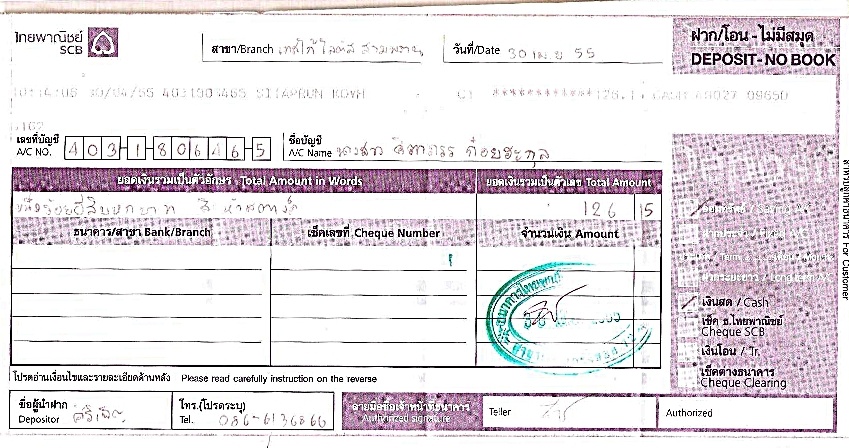 ไทยพาณิชย์
SCB
สาขา/Branch เทสโก้ โลตัส สามพราน
วันที่/Date 30 เม.ย 55
ฝาก/โอน - ไม่มีสมุด
DEPOSIT - NO BOOK
30/04/55 403180 465 SITAPRON
เลขที่บัญชี
A/C NO. 403-1-80646-5
ชื่อบัญชี
A/C Name นางสาว
ยอดเงินรวมเป็นตัวอักษร - Total Amount in Words
ยอดเงินรวมเป็นตัวเลข Total Amount
หนึ่งร้อยยี่สิบหกบาท
126 15
ธนาคาร/สาขา Bank/Branch
เช็คเลขที่ Cheque Number
จำนวนเงิน Amount
เงินสด / Cash
เช็ค ธ.ไทยพาณิชย์
Cheque SCB
เงินโอน / Tr.
เช็คต่างธนาคาร
Cheque Clearing
For Customer
โปรดอ่านเงื่อนไขและรายละเอียดด้านหลัง Please read carefully instruction on the reverse
ชื่อผู้นำฝาก
Depositor
โทร.(โปรดระบุ)
Tel. 086-6136866
ลายมือชื่อเจ้าหน้าที่ธนาคาร
Authorized signature
Teller
Authorized